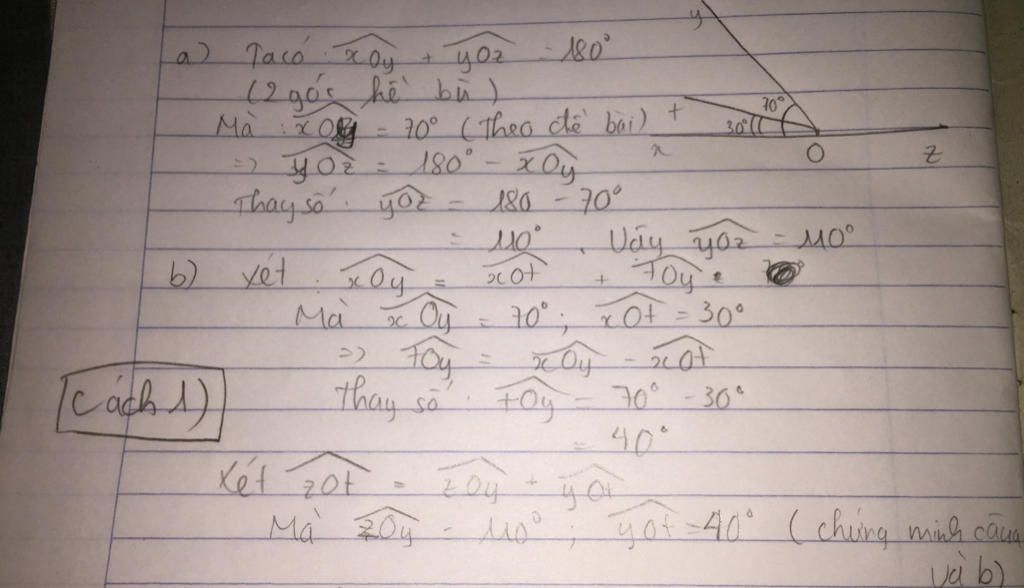 y
a) Ta có: xOy + yOz = 180°
(2 góc kề bù)
70°
t
30°
Mà: xOy = 70° (Theo đề bài)
x O z
=> yOz = 180° - xOy
Thay số: yOz = 180 - 70°
= 110°. Vậy yOz = 110°
b) Xét: xOy = xOt + tOy
Mà xOy = 70°; xOt = 30°
=> tOy = xOy - xOt
Cách 1)
Thay số: tOy = 70° - 30°
= 40°
Xét zOt = zOy + yOt
Mà zOy = 110°; yOt = 40° (chứng minh câu a
và b)